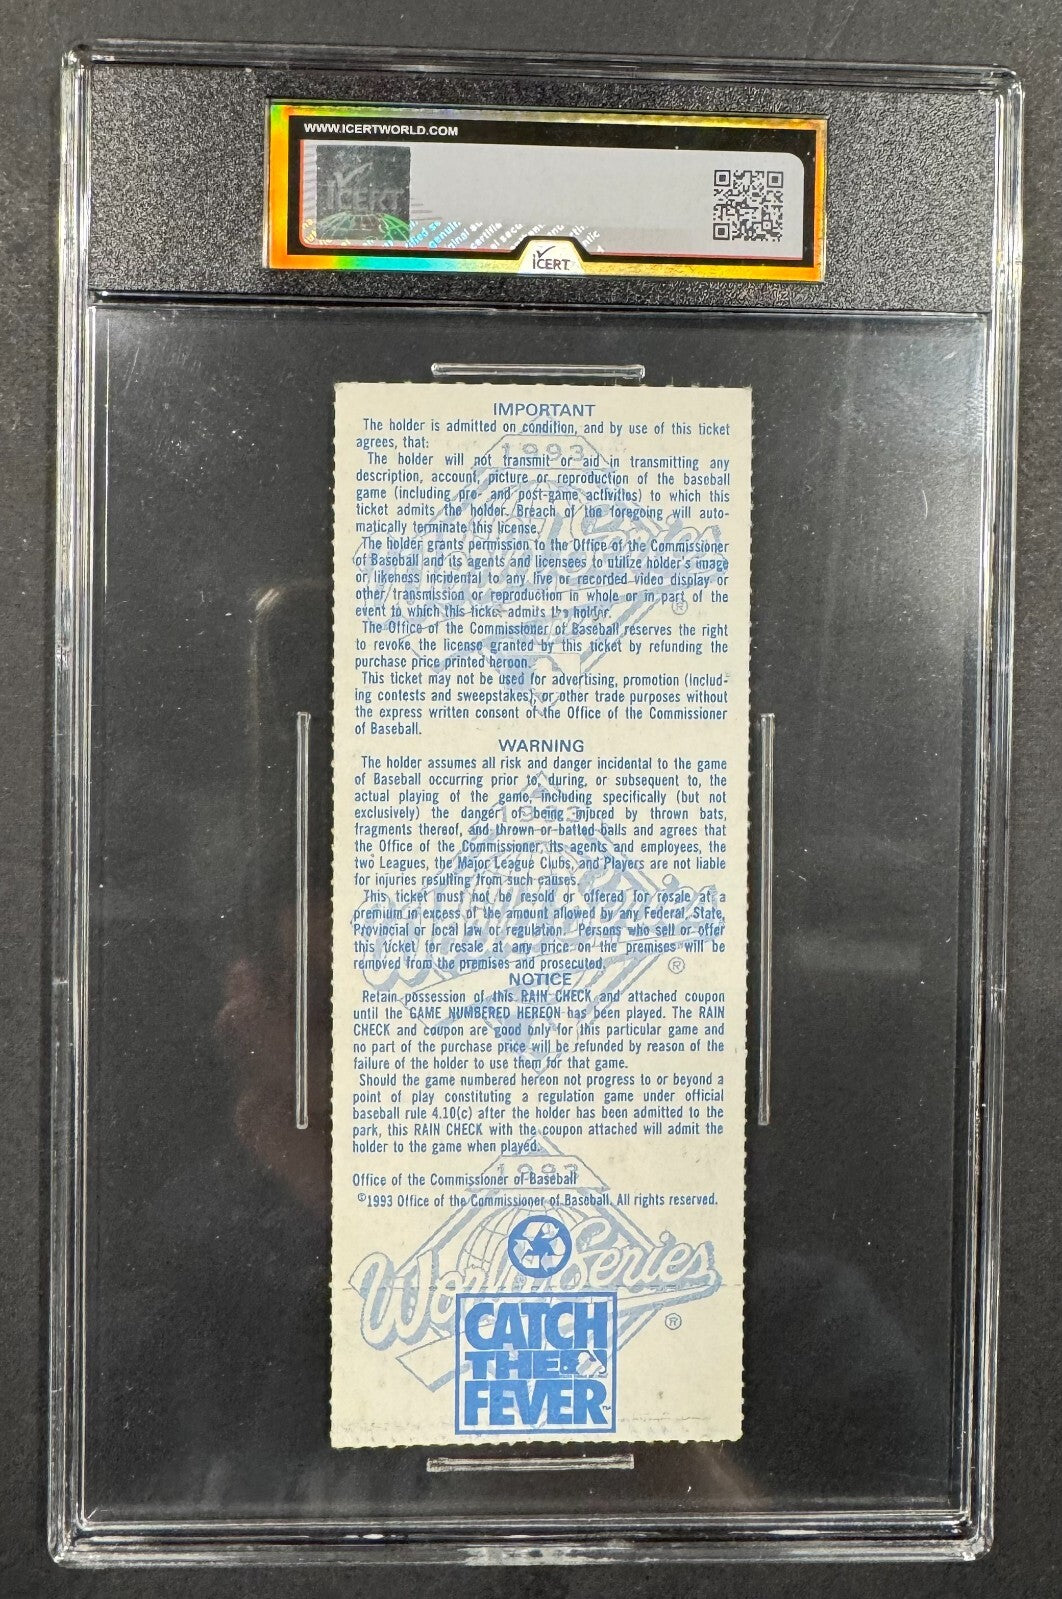 WWW.ICERTWORLD.COM
ICERT
ICERT
IMPORTANT
The holder is admitted on condition, and by use of this ticket
agrees, that:
The holder will not transmit or aid in transmitting any
description, account, picture or reproduction of the baseball
game (including pre- and post-game activities) to which this
ticket admits the holder. Breach of the foregoing will auto-
matically terminate this license.
The holder grants permission to the Office of the Commissioner
of Baseball and its agents and licensees to utilize holder's image
or likeness incidental to any live or recorded video display or
other transmission or reproduction in whole or in part of the
event to which this ticket admits the holder.
The Office of the Commissioner of Baseball reserves the right
to revoke the license granted by this ticket by refunding the
purchase price printed hereon.
This ticket may not be used for advertising, promotion (includ-
ing contests and sweepstakes) or other trade purposes without
the express written consent of the Office of the Commissioner
of Baseball.
WARNING
The holder assumes all risk and danger incidental to the game
of Baseball occurring prior to, during, or subsequent to, the
actual playing of the game, including specifically (but not
exclusively) the danger of being injured by thrown bats,
fragments thereof, and thrown or batted balls and agrees that
the Office of the Commissioner, its agents and employees, the
two Leagues, the Major League Clubs, and Players are not liable
for injuries resulting from such causes.
This ticket must not be resold or offered for resale at a
premium in excess of the amount allowed by any Federal, State,
Provincial or local law or regulation. Persons who sell or offer
this ticket for resale at any price on the premises will be
removed from the premises and prosecuted.
NOTICE
Retain possession of this RAIN CHECK and attached coupon
until the GAME NUMBERED HEREON has been played. The RAIN
CHECK and coupon are good only for this particular game and
no part of the purchase price will be refunded by reason of the
failure of the holder to use them for that game.
Should the game numbered hereon not progress to or beyond a
point of play constituting a regulation game under official
baseball rule 4.10(c) after the holder has been admitted to the
park, this RAIN CHECK with the coupon attached will admit the
holder to the game when played.
Office of the Commissioner of Baseball
©1993 Office of the Commissioner of Baseball. All rights reserved.
1993
World Series
®
1993
World Series
®
1993
World Series
®
CATCH
THE
FEVER™